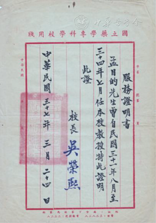 國立藥學專科學校用牋
服務證明書
孟目的先生曾自民國三十一年八月至
三十四年七月任本校教授特此證明
此證
校長 吳榮熙
中華民國三十七年 三月 二十四日